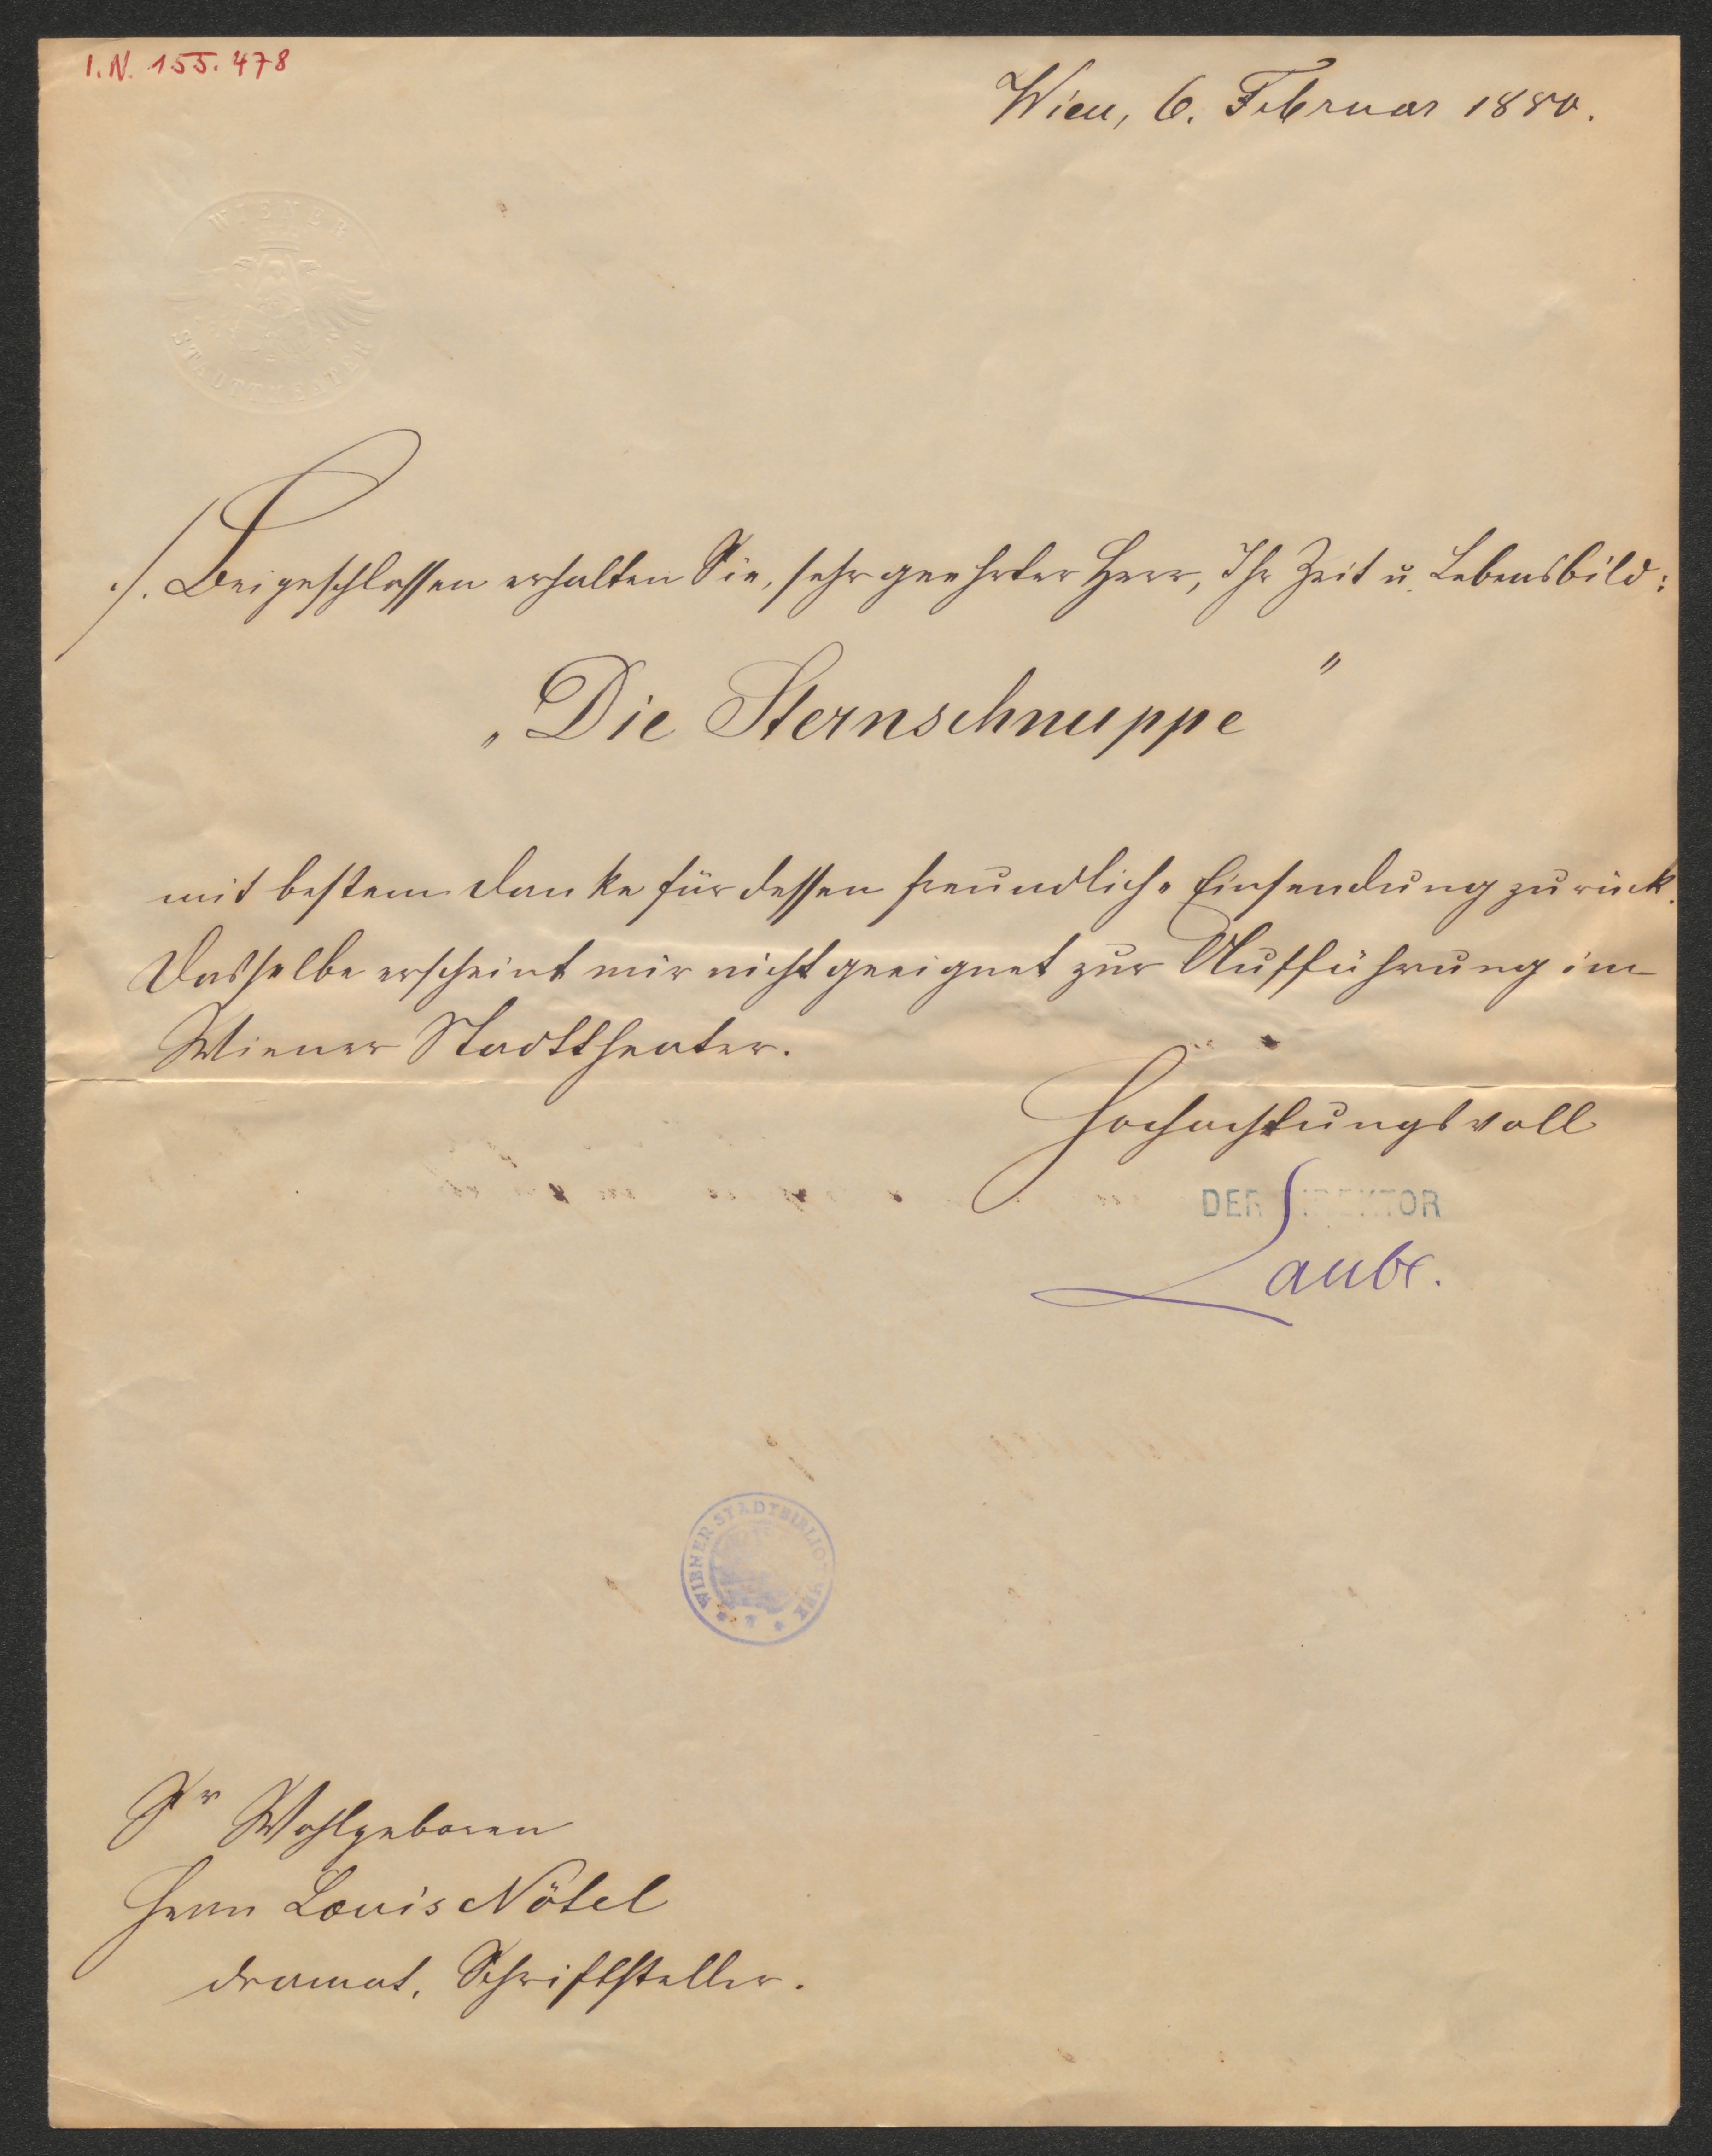 I.N. 155.478
Wien, 6. Februar 1880.
WIENER
STADTTHEATER
./. Beigeschlossen erhalten Sie, sehr geehrter Herr, Ihr Zeit u. Lebensbild:
„Die Sternschnuppe"
mit bestem Danke für dessen freundliche Einsendung zurück.
Dasselbe erscheint mir nicht geeignet zur Aufführung im
Wiener Stadttheater.
Hochachtungsvoll
DER DIREKTOR
Laube.
WIENER STADTBIBLIOTHEK
Sr Wohlgeboren
Herrn Louis Nötel
dramat. Schriftsteller.